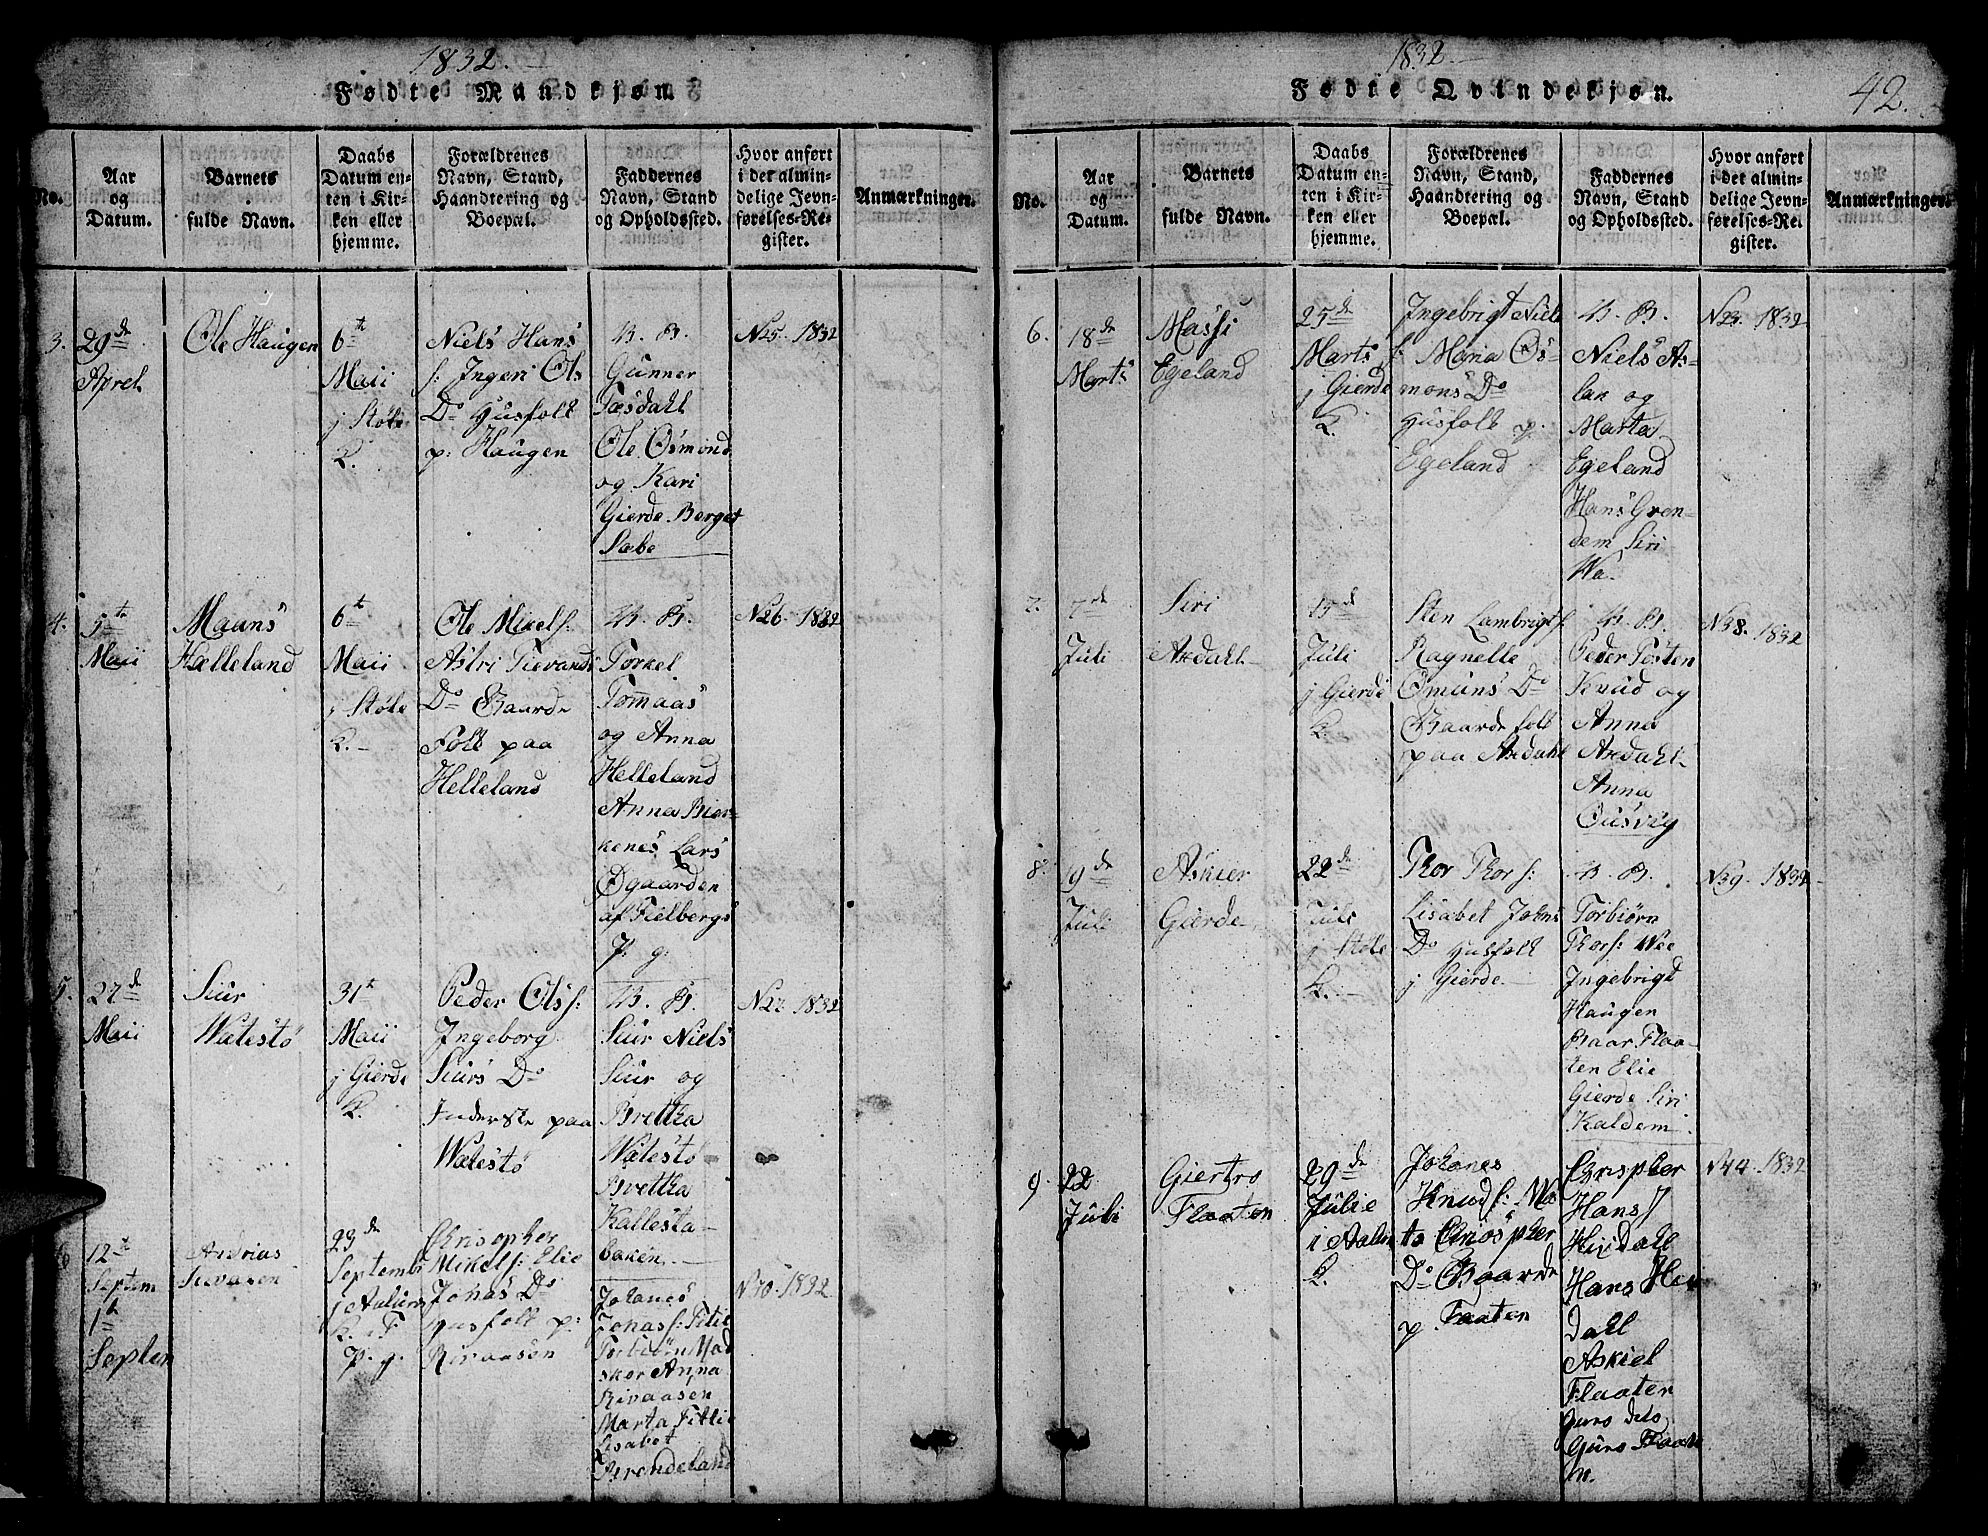 1832.
Fødte Mandkjøn.
No.
Aar
og
Datum.
Barnets
fulde Navn.
Daabs
Datum en-
ten i Kir-
ken eller
hjemme.
Forældrenes
Navn, Stand,
Haandtering og
Boepal.
Faddernes
Navn, Stand
og Opholdssted.
Hvor anført
i det almin-
delige Jevn-
førelses-Re-
gister.
Anmærkninger.
3.
29de
Aprel
Ole Haugen
6te
Maii
j Støle
K.
Niels Hans
s: Ingeri Ols
Do Husfolk
p: Haugen
B. B.
Gunner
Tæsdahl
Ole Osmond
og Kari
Gierde Berget
Sæbe
N25. 1832
4.
5te
Maii
Maans
Hælleland
6te
Maii
j Støle
K.
Ole Mikels:
Astri Sievands
Do Gaarde
Folk paa
Helleland
B. B.
Torkel
Tommaas
og Anna
Helleland
Anna Bier-
kenes Lars
Øgaarden
af Fielbergs
P. g:
N26. 1832
5.
27de
Maii
Siur
Watestø
31te
Maii
j Gierde
K.
Peder Olss:
Ingeborg
Siurs Do
Inderste paa
Watestø
B. B.
Siur Niels
Siur og
Brettha
Watestø
Brettha
Kallesta-
baken
N27. 1832
6
12te
Septem
1te
Septem
Andrias
23de
Septemb
j Aalun
K. i F
P. g.
Chrisopher
Mikels: Elie
Jonas Do
Husfolk p:
Rivaasen
Johanes
Jonas: Fitie
Torbiørn Mad
skor Anna
Rivaasen
Marta Fitti
Lisabet
N40. 1832
1832
Fødte Qvindekjøn.
42.
No.
Aar
og
Datum.
Barnets
fulde Navn.
Daabs
Datum en-
ten i Kir-
ken eller
hjemme.
Forældrenes
Navn, Stand,
Haandtering og
Boepal.
Faddernes
Navn, Stand
og Opholdssted.
Hvor anført
i det almin-
delige Jevn-
førelses-Re-
gister.
Anmærkninger.
6.
18de
Marts
Massi
Egeland
25de
Marts
j Gierde
K.
Ingebrigt Niels
s: Maria Os-
mons Do
Husfolk p.
Egeland
B. B.
Niels As-
lak og
Marta
Egeland
Hans Gren-
dem Siri
Wa.
N23. 1832
7.
7de
Juli
Siri
Axdahl
15de
Juli
j Gierde
K.
Sten Lambrigts:
Ragnelle
Osmuns Do
Gaarde folk
paa Axdahl
B. B.
Peder Tosten
Knud og
Anna
Axdahl
Anna
Ousvig
N38. 1832
8.
9de
Juli
Askier
Gierde
22de
Juli
j Støle
K.
Thor Thors:
Lisabet Johns
Do Husfolk
j Gierde
B. B.
Torbiørn
Thors: Wee
Ingebrigt
Haugen
Baar Flaa-
ten Elie
Gierde Siri
Kaldem
N39. 1832
9.
22
Juli
Giertro
Flaaten
29de
Julie
i Aalun
K.
Johanes
Knuds: Ma
ta Chrispher
Do Gaarde
p. Flaaten
Chrispher
Hans
Hiɾdahl
Hans Hei
dahl
Askiel
Flaaten
Guro dito
Guro Flaate
n.
N44. 1832